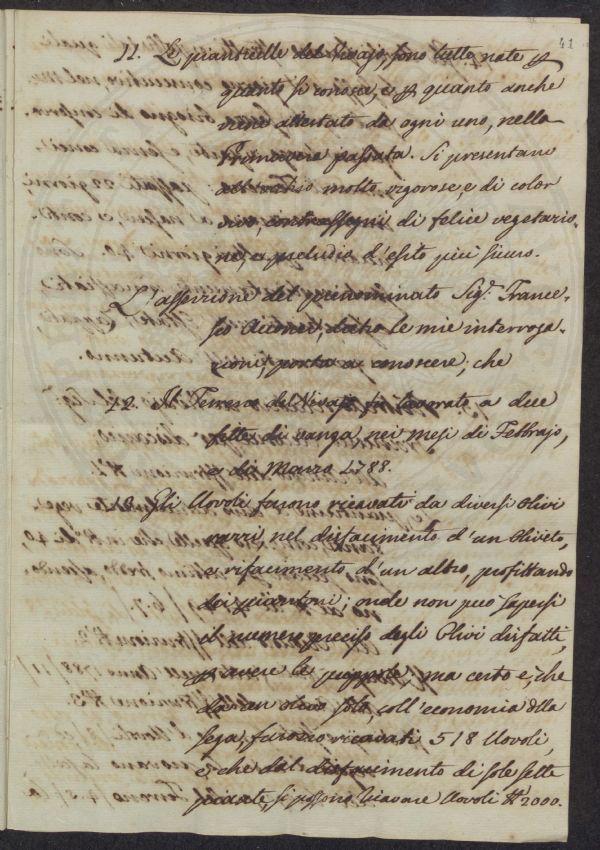 41
11. Le pianticelle del Vivajo, sono tutte nate p
quanto si conosce, e p quanto anche
viene attestato da ogni uno, nella
Primavera passata. Si presentano
all'occhio molto vigorose, e di color
vivo, contrassegni di felice vegetazio-
ne, e preludio d'esito più sicuro.
L'asserzione del prenominato Sig.r France-
sco dietro le mie interroga-
zioni, porta a conoscere, che
12. Il Terreno del Vivajo fu lavorato a due
fette di vanga nei mesi di Febbrajo,
e di Marzo 1788.
13. Gli Uovoli furono ricavati da diversi Olivi
nel disfacimento d'un Oliveto,
e rifacimento d'un altro, profittando
dei piantoni; onde non può sapersi
il numero preciso degli Olivi disfatti,
p avere le ma certo è, che
da un olivo solo, coll'economia della
sega, furono ricavati 518 Uovoli,
e che dal disfacimento di sole sette
piante, si possono ricavare Uovoli N.o 2000.